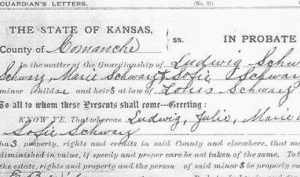 GUARDIAN'S LETTERS.
THE STATE OF KANSAS,
County of Comanche ss. IN PROBATE
In the matter of the Guardianship of Ludwig Schw
Schwarz, Marie Schwarz & Sofie Schwarz
minor children and heirs at law of Louis Schwarz
To all to whom these Presents shall come—Greeting:
KNOW YE, That whereas Ludwig, Julie, Marie
Sofie Schwarz
property, rights and credits in said County and elsewhere, that ma
diminished in value, if speedy and proper care be not taken of the same. To
the estate, rights and property and the person of said minor be properly ca